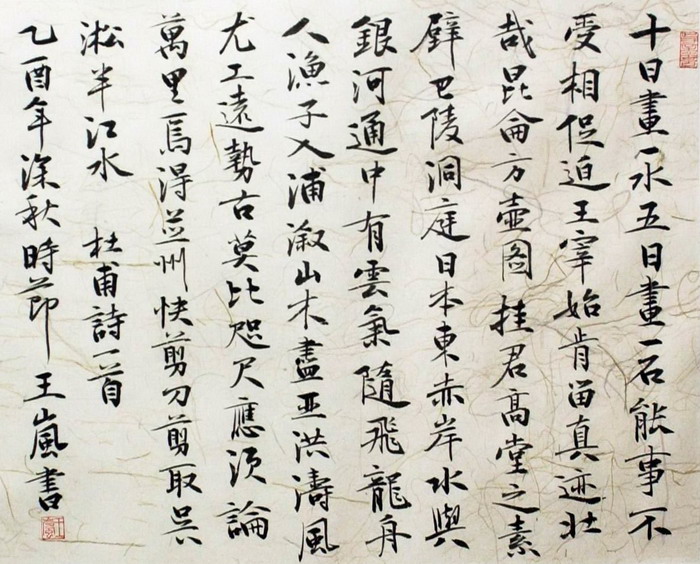 十日畫一水五日畫一石能事不
受相促迫王宰始肯留真迹壯
哉昆侖方壺圖挂君高堂之素
壁巴陵洞庭日本東赤岸水與
銀河通中有雲氣隨飛龍舟
人漁子入浦溆山木盡亞洪濤風
尤工遠勢古莫比咫尺應須論
萬里焉得並州快剪刀剪取吴
淞半江水 杜甫詩一首
乙酉年深秋時節王嵐書